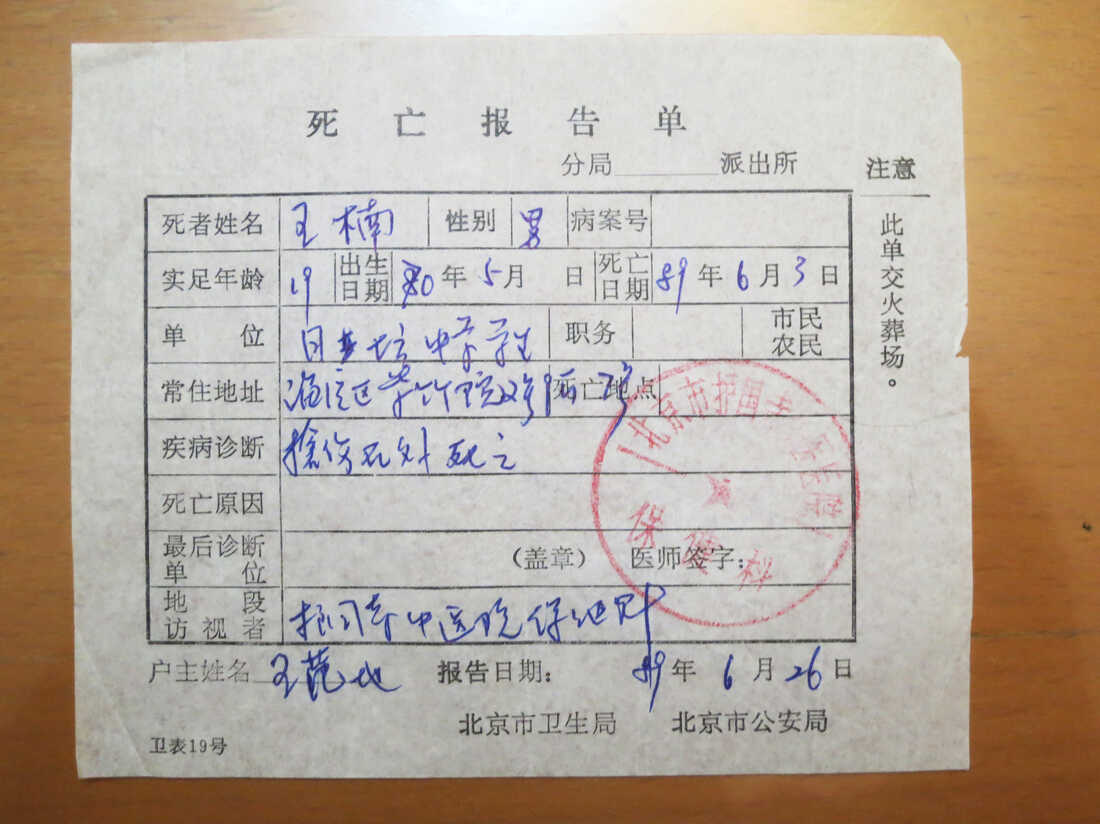 死亡报告单
分局______派出所
注意
此单交火葬场。
死者姓名 王楠 性别 男 病案号
实足年龄 19 出生日期 70年5月 日 死亡日期 89年6月3日
单位 月坛中学学生 职务 市民 农民
常住地址 海淀区 死亡地点
疾病诊断 枪伤 死亡
死亡原因
最后诊断单位 (盖章) 医师签字:
地段访视者 护国寺中医院保健科
户主姓名 王范地 报告日期: 89年6月26日
北京市卫生局 北京市公安局
卫表19号
北京市护国寺 医院
保健科